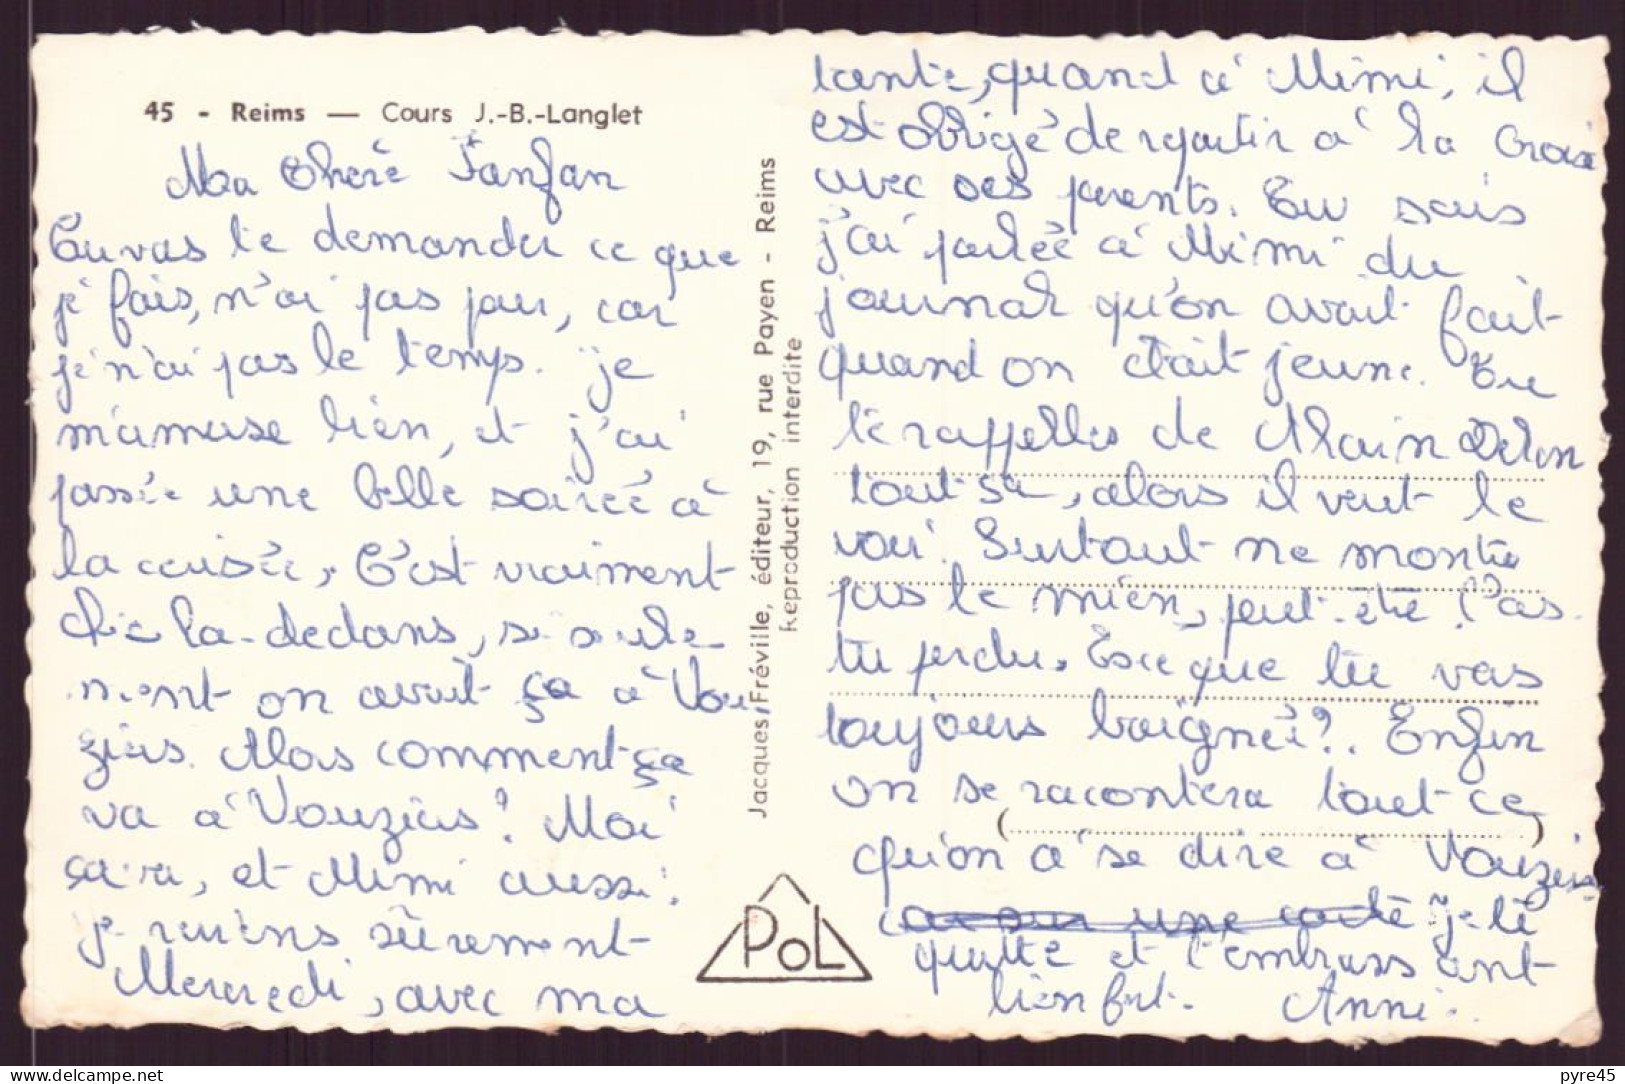 45 - Reims — Cours J.-B.-Langlet
Ma Chère Fanfan
Tu vas te demander ce que
je fais, n'ai pas peur, car
je n'ai pas le temps. je
m'amuse bien, et j'ai
passée une belle soirée à
la croisée. C'est vraiment
chic là-dedans, si seule
ment on avait ça à Vou
ziers. Alors comment ça
va à Vouziers? Moi
ça va, et Mimi aussi.
je reviens sûrement
Mercredi, avec ma
tante, quand à Mimi, il
est obligé de repartir à la Croix
avec ses parents. Tu sais
j'ai parlée à Mimi du
journal qu'on avait fait
quand on était jeune. Tu
te rappelles de Alain Delon
tout sa, alors il veut le
voir. Surtout ne montre
pas le mien, peut-être l'as
tu perdu. Esce que tu vas
toujours baignée?. Enfin
on se racontera tout ce
qu'on a à se dire à Vouziers
je te
quitte et t'embrassant
bien fort. Annie.
Jacques Fréville, éditeur, 19, rue Payen - Reims
Reproduction interdite
POL
delcampe.net
pyre45